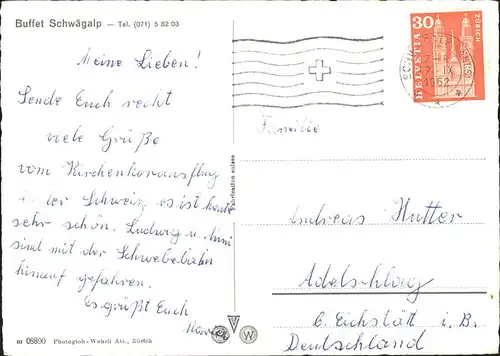 Buffet Schwägalp — Tel. (071) 5 82 03
Meine Lieben!
Sende Euch recht
viele Grüße
vom Kirchenkorausflug
in der Schweiz es ist heute
sehr schön. Ludwig u. Anni
sind mit der Schwebebahn
hinauf gefahren.
Es grüßt Euch
m 08890 Photogloh-Wehrli AG., Zürich
Fabrication suisse
W
30
HELVETIA
ZÜRICH
IX
1962
Familie
Andreas Hutter
Adelschlag
b. Eichstätt i. B.
Deutschland